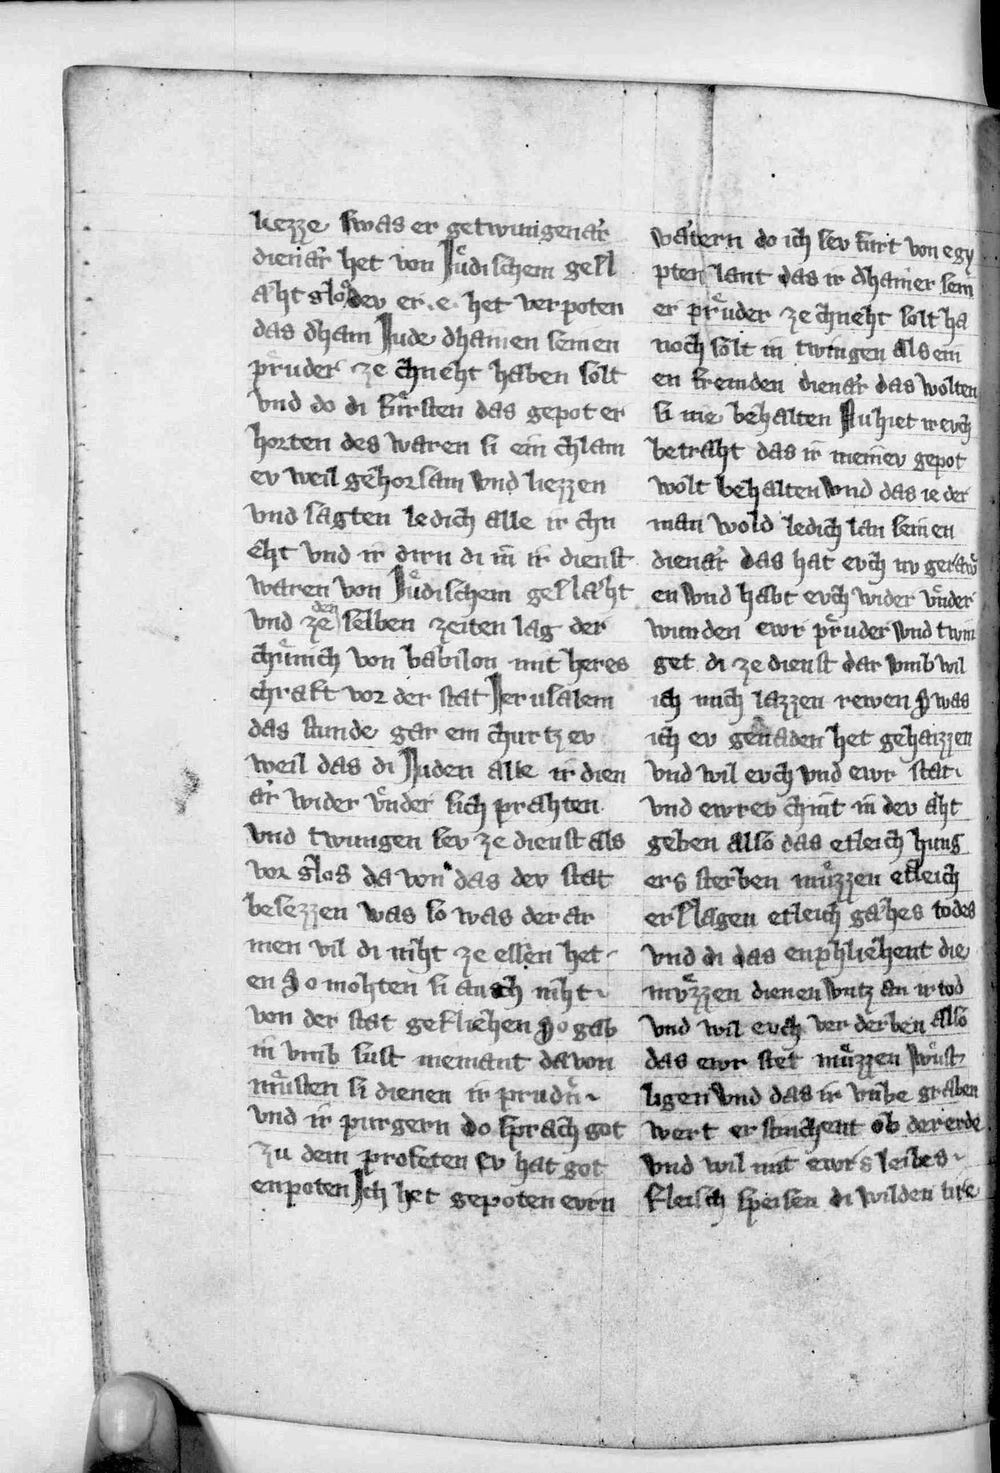 liezze swas er getwungenar̓
dienar̓ het von Jůdischem gesl
aͤht slos dev er .e. het verpoten
das dham Jude dhainen seinen
průder ze chneht haben solt
vnd do di fůrsten das gepot er
horten des waren si ein chlain
ev weil gehorsam vnd liezzen
vnd sagten ledich alle ir chn
eht vnd ir dirn di in ir dienst
waren von Jůdischem geslaͤht
vnd ze den selben zeiten lag der
chůnich von babilon mit heres
chraft vor der stat Jerusalem
das stunde gar ein churtz ev
weil das di Juden alle ir dien
ar̓ wider vnder sich prahten
vnd twungen sev ze dienst als
vor slos da von das dev stat
besezzen was so was der ar
men vil di niht ze essen het
en So mohten si auch niht
von der stat gefliehen So gab
in vmb sust niemant da von
můsten si dienen ir prudn̓
vnd ir purgern do sprach got
zu dem profeten Ev hat got
enpoten Ich het gepoten evrn
vatern do ich sev furt von egy
pten lant das ir dhainer sein
er průder ze chneht solt ha
noch solt in twingen als ein
en fremden dienar̓ das wolten
si nie behalten Nu hiet ir evch
betraht das ir meinev gepot
wolt behalten vnd das ie der
man wold ledich lan seinen
dienar̓ das hat evch nv geraw
en vnd habt evch wider vnder
wunden ewr průder vnd twin
get di ze dienst dar vmb wil
ich mich lazzen rewen Swas
ich ev genaden het gehaizzen
vnd wil evch vnd ewr stat
vnd ewrev chint in dev aͤht
geben also das etleich hung
ers sterben můzzen etleich
erslagen etleich gahes todes
vnd di das enphliehent die
můzzen dienen vntz an ir tod
vnd wil evch verderben also
das ewr stet můzzen wůst
ligen vnd das ir vnbegraben
wert er stinchent ob der erde
vnd wil mit ewrs leibes
fleisch speisen di wilden tire